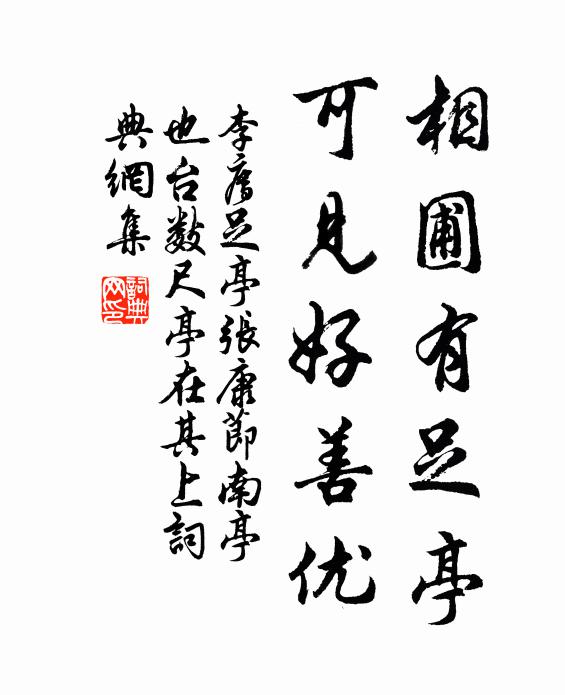 相圃有足亭
可見好善优
李膺足亭張康節南亭
也台数尺亭在其上詞
典網集
詞典网印